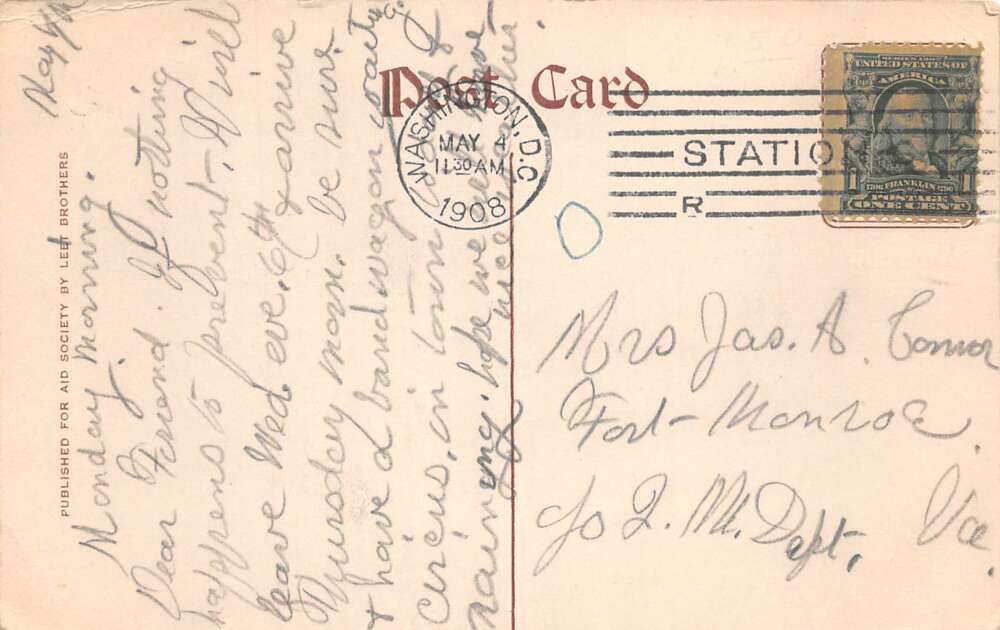 Post Card
WASHINGTON, D.C.
MAY 4
11 30 AM
1908
STATION
R
SERIES 1902
UNITED STATES OF
AMERICA
1
1706 FRANKLIN 1790
POSTAGE
ONE CENT
PUBLISHED FOR AID SOCIETY BY LEET BROTHERS
May 4/08
Monday Morning.
Dear Friend. If nothing
happens to prevent, I will
leave Wed eve. 6th & arrive
Thursday morn. be sure
& have a bandwagon waiting
Circus in town and
raining. hope we
Mrs Jas. A. Connor
Fort Monroe
c/o Q. M. Dept. Va.